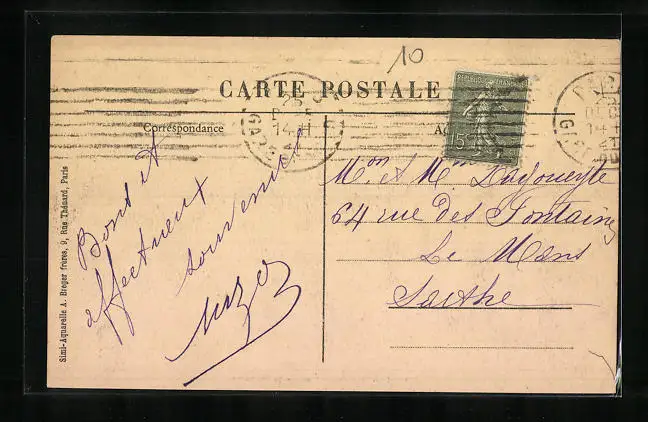 10
CARTE POSTALE
Correspondance
RÉPUBLIQUE FRANÇAISE
15
PARIS
25
14 H
GARE
Bons et
affectueux
souvenirs
Mon et Mme
64 rue des Fontaines
Le Mans
Sarthe
Simi-Aquarelle A. Breger frères, 9, Rue Thénard, Paris